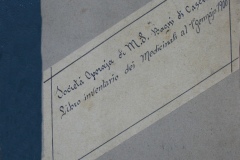 Società Operaja di M. S. Bagni di Casc
Libro inventario dei Medicinali al 1 gennajo 1900